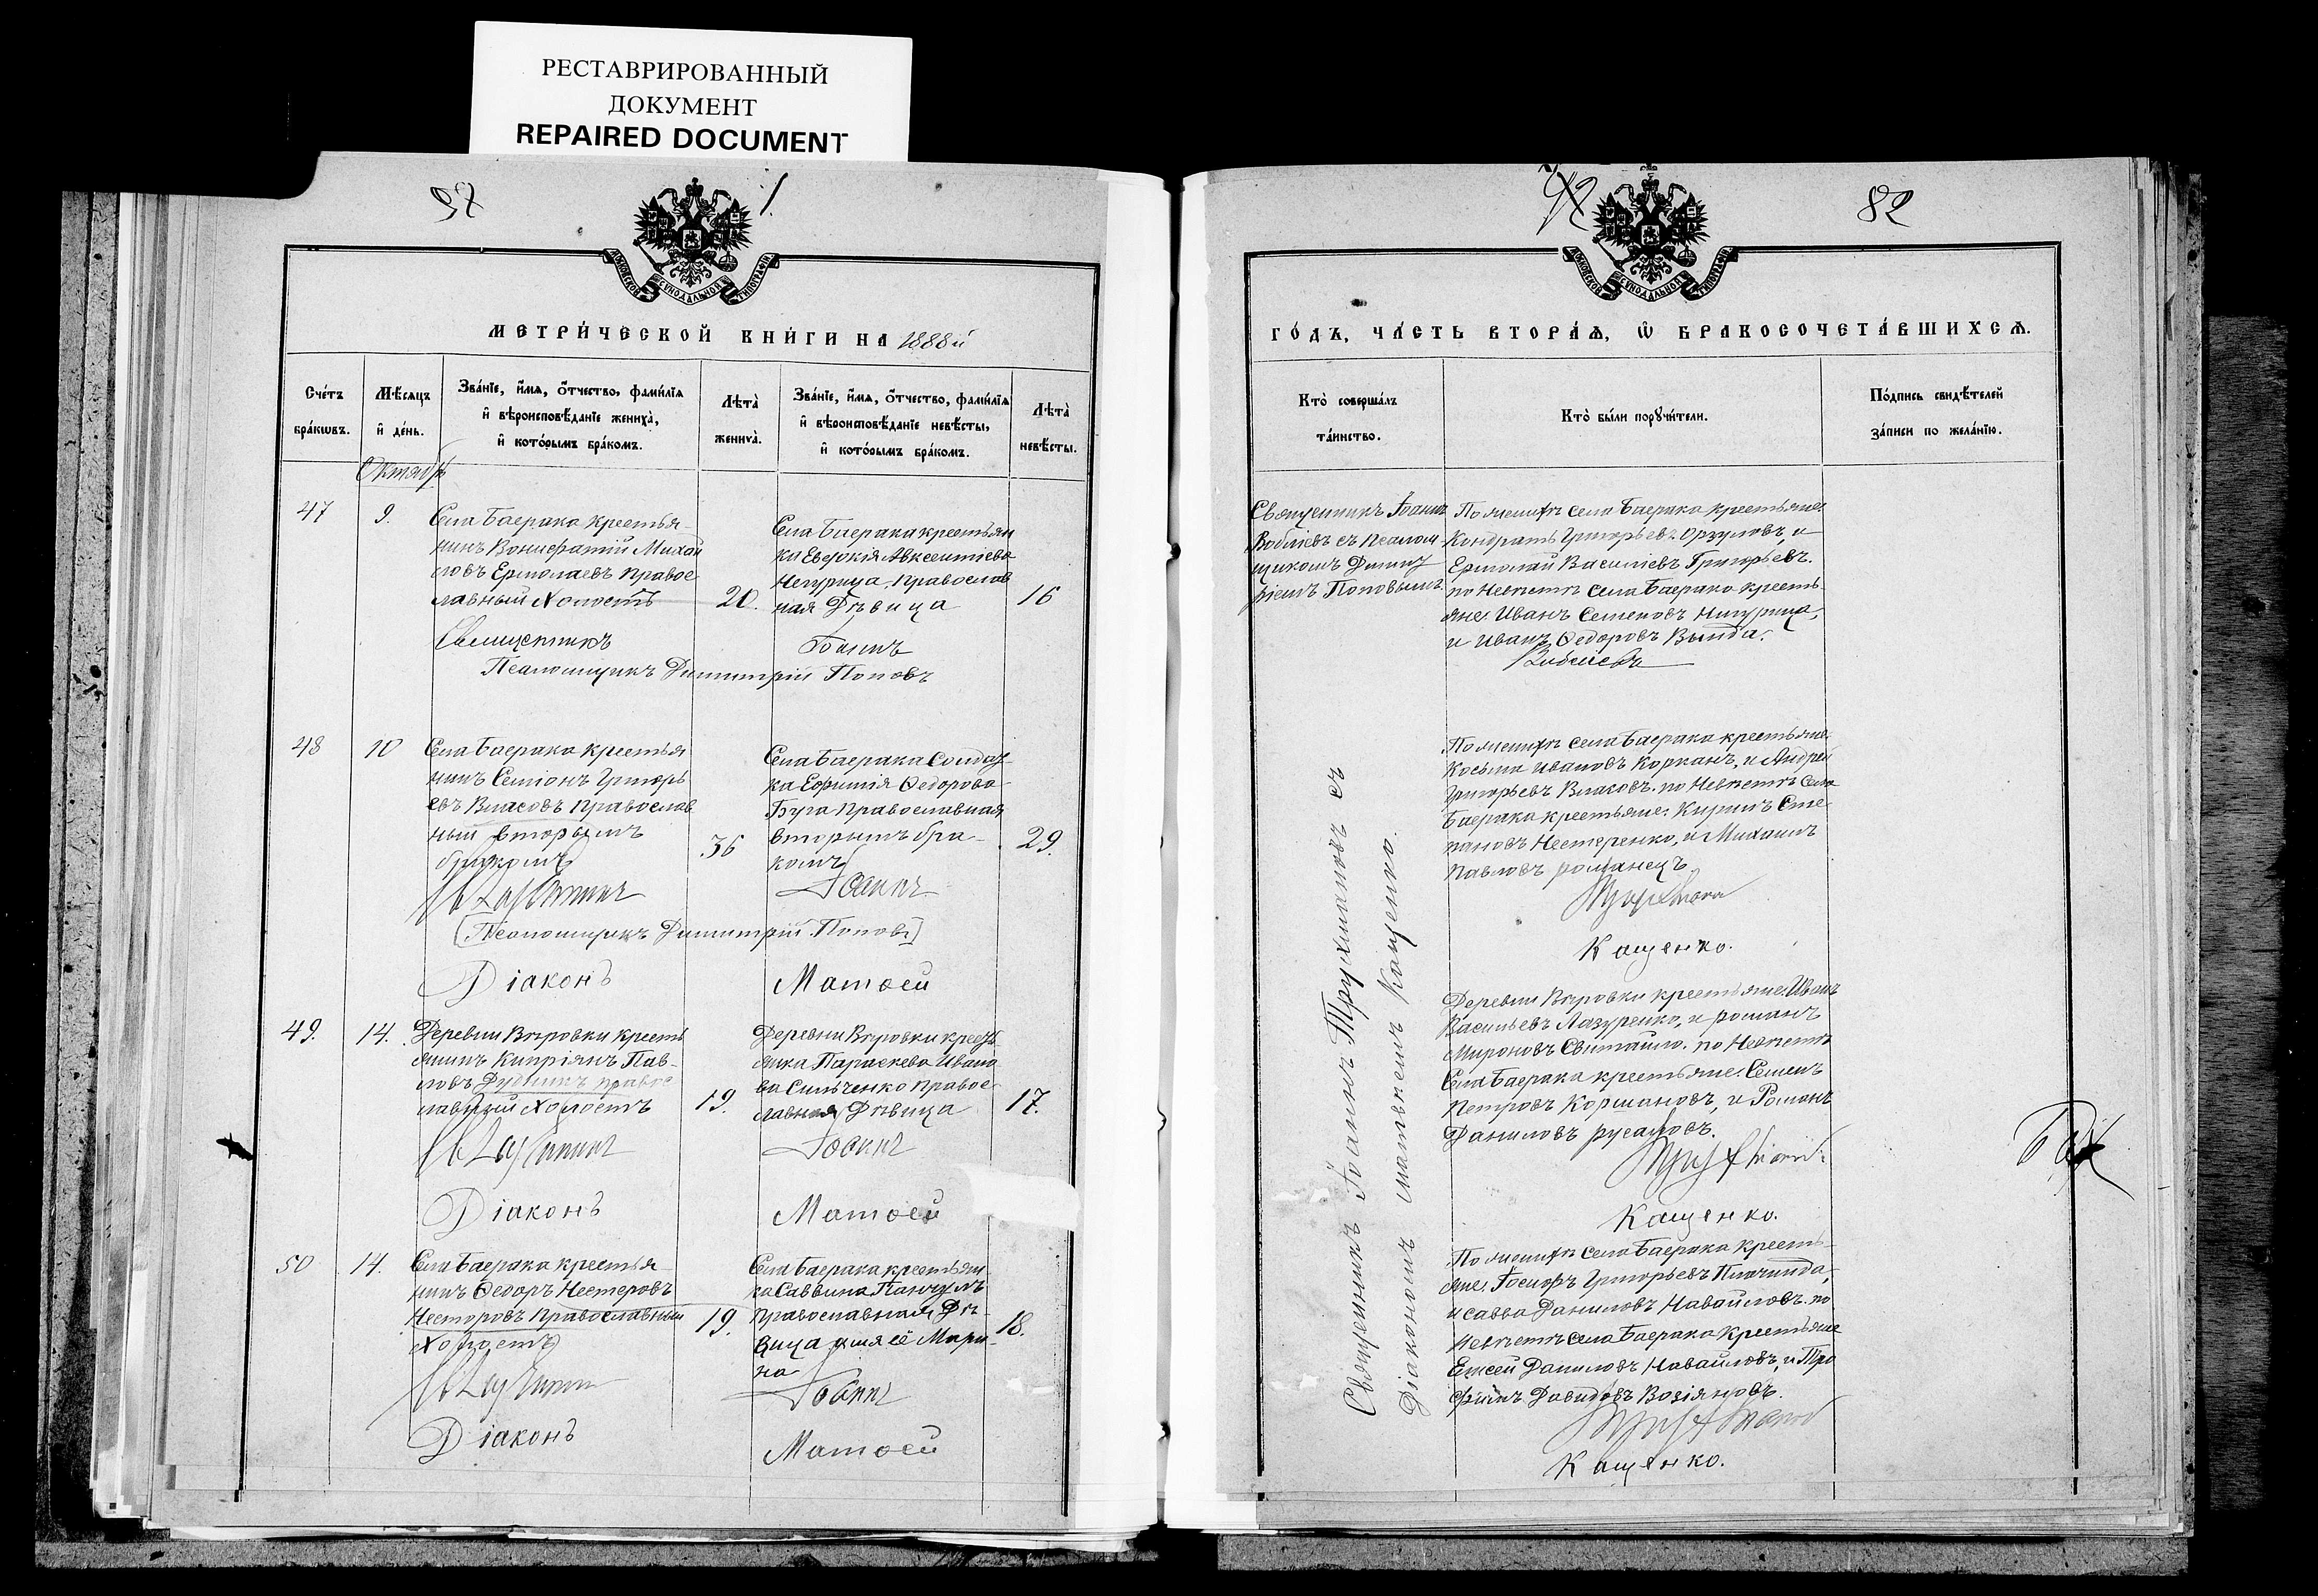 РЕСТАВРИРОВАННЫЙ
ДОКУМЕНТ
REPAIRED DOCUMENT
МОСКОВСКОЙ СѴНОДАЛЬНОЙ ТИПОГРАФІИ
МЕТРИ́ЧЕСКОЙ КНИ́ГИ НА 1888й
Сче́тъ
бра́кѡвъ.
Мѣ́сяцъ
и҆ де́нь.
Зва́нїе, и҆́мя, ѻ҆́тчество, фами́лїя
и҆ вѣроисповѣ́данїе жениха̀,
и҆ кото́рымъ бра́комъ.
Лѣта̀
жениха̀.
Зва́нїе, и҆́мя, ѻ҆́тчество, фами́лїя
и҆ вѣроисповѣ́данїе невѣ́сты,
и҆ кото́рымъ бра́комъ.
Лѣта̀
невѣ́сты.
Октябрь
47
9.
Села Баерака крестья-
нинъ Вонифатій Михай
ловъ Ермолаевъ Правос
лавный Холостъ
20.
Села Баерака крестьян
ка Евдокія Авксентіева
Негурица, Православ
ная Дѣвица
16
Священникъ Іоаннъ
Псаломщикъ Димитрій Поповъ
48
10
Села Баерака крестья
нинъ Семіонъ Григорь
евъ Власовъ Православ
ный вторымъ
бракомъ
36
Села Баерака Солдат-
ка Ефимія Ѳедорова
Буга Православная
вторымъ бра-
комъ
29.
Священникъ Іоаннъ
(Псаломщикъ Димитрій Поповъ)
Діаконъ Матѳей
49.
14.
Деревни Вѣровки кресть
янинъ Кипріянъ Пав-
ловъ Дудникъ правос
лавный Холостъ
19.
Деревни Вѣровки крест
янка Параскева Ивано
ва Сильченко Правос
лавная Дѣвица
17.
Священникъ Іоаннъ
Діаконъ Матѳей
50
14.
Села Баерака крестья
нинъ Ѳедоръ Нестеровъ
Несторовъ Православный
Холостъ
19.
Села Баерака крестьян
ка Саввина
Православная Дѣ-
вица имя её Мари-
на
18.
Священникъ Іоаннъ
Діаконъ Матѳей
82
МОСКОВСКОЙ СѴНОДАЛЬНОЙ ТИПОГРАФІИ
ГО́ДЪ, ЧА́СТЬ ВТОРА́Я, Ѡ҆ БРАКОСОЧЕТА́ВШИХСЯ.
Кто̀ соверша́лъ
та́инство.
Кто̀ бы́ли порꙋчи́тели.
По́дпись свидѣ́телей
за́писи по жела́нїю.
Священникъ Іоаннъ
съ Псалом
щикомъ Димит
ріемъ Поповымъ.
По женихѣ села Баерака крестьяне
Кондратъ Григорьевъ Орзуловъ, и
Ермолай Василіевъ Григорьевъ.
по Невѣстѣ села Баерака кресть
яне. Иванъ Семеновъ Нигурица,
и Иванъ Ѳедоровъ Вында.
Священникъ Іоаннъ Трухмановъ съ
Діакономъ Матвѣемъ Кащенко.
По женихѣ села Баерака крестьяне.
Косьма Ивановъ Корканъ, и Андрей
Григорьевъ Влаховъ. по Невѣстѣ Села
Баерака крестьяне. Кирилъ Сте
пановъ Нестеренко, и Михаилъ
Павловъ романецъ.
Трухманов
Кащенко.
Деревни Вѣровки крестьяне. Иванъ
Васильевъ Лазуренко, и романъ
Мироновъ Свитайло. по Невѣстѣ
Села Баерака крестьяне. Семенъ
Петровъ Коршановъ, и Романъ
Даниловъ русановъ.
Трухманов
Кащенко.
По женихѣ села Баерака кресть-
яне. Іосифъ Григорьевъ Плачинда,
и Савва Даниловъ Навайловъ. по
Невѣстѣ села Баерака крестьяне
Елисей Даниловъ Навайловъ, и Тро
фимъ Давидовъ Возіяновъ.
Трухманов
Кащенко.